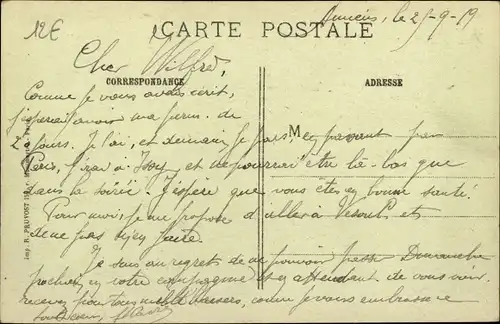 12€
CARTE POSTALE
Amiens, le 25-9-19
Cher Wilfred,
CORRESPONDANCE
ADRESSE
Comme je vous avais écrit,
j'espérais avoir ma perm. de
2 jours. Je l'ai, et demain je pars, en passant par
M
Paris, j'irai à et ne pourrai être là-bas que
dans la soirée. J'espère que vous êtes en bonne santé.
Pour moi, je me propose d'aller à et
de me pas bien faire.
Je suis au regret de ne pouvoir passer Dimanche
prochain en votre compagnie et en attendant de vous voir
recevez pour tous mille baisers, comme je vous embrasse
Imp. R. PRUVOST